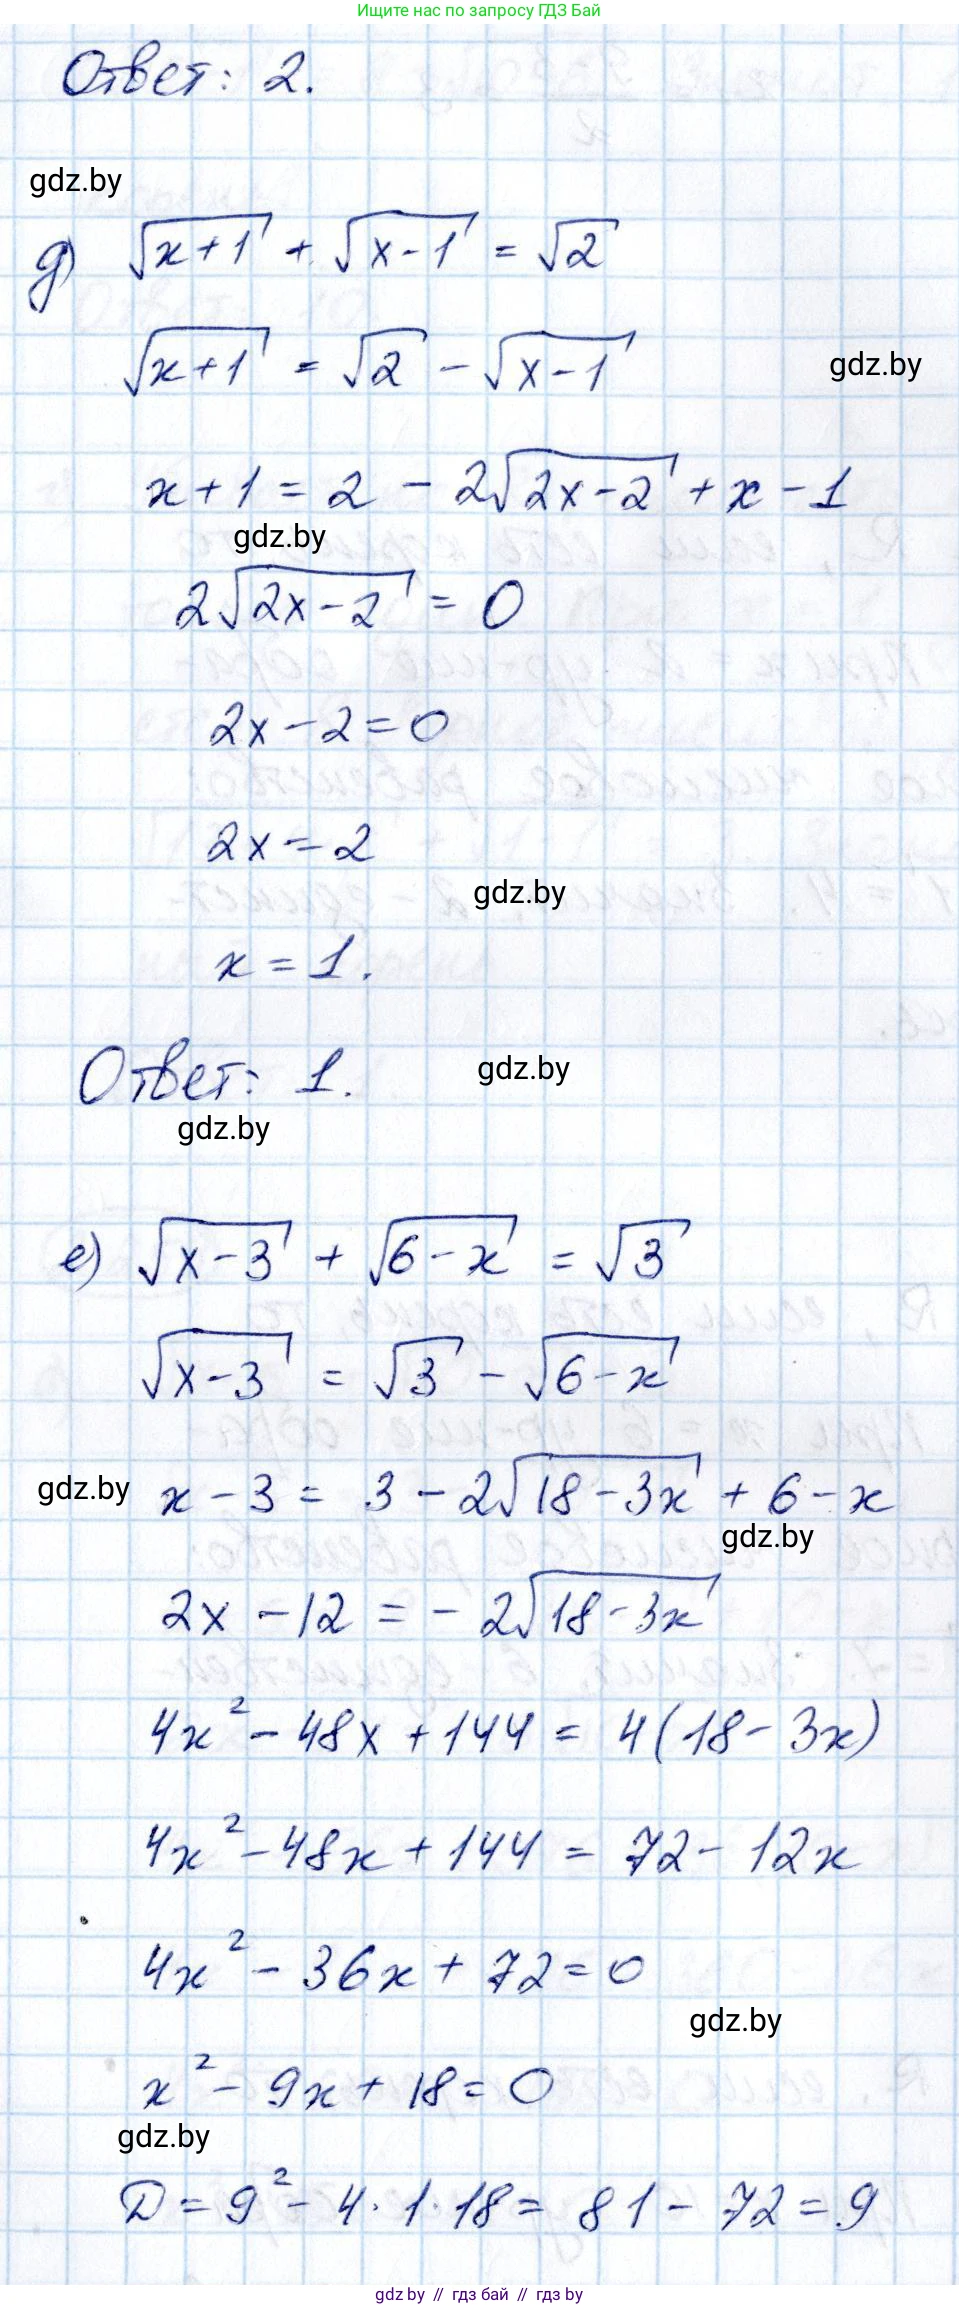 Ищите нас по запросу ГДЗ Бай
Ответ: 2.
gdz.by
д) √(x+1) + √(x-1) = √2
√(x+1) = √2 - √(x-1)
gdz.by
x+1 = 2 - 2√(2x-2) + x - 1
gdz.by
2√(2x-2) = 0
2x-2=0
2x=2
gdz.by
x=1.
Ответ: 1.
gdz.by
gdz.by
е) √(x-3) + √(6-x) = √3
√(x-3) = √3 - √(6-x)
gdz.by
x-3 = 3-2√(18-3x) + 6-x
gdz.by
2x-12 = -2√(18-3x)
4x² - 48x + 144 = 4(18-3x)
4x² - 48x + 144 = 72 - 12x
4x² - 36x + 72 = 0
gdz.by
x² - 9x + 18 = 0
gdz.by
D = 9² - 4·1·18 = 81 - 72 = 9
gdz by // гдз бай // гдз by